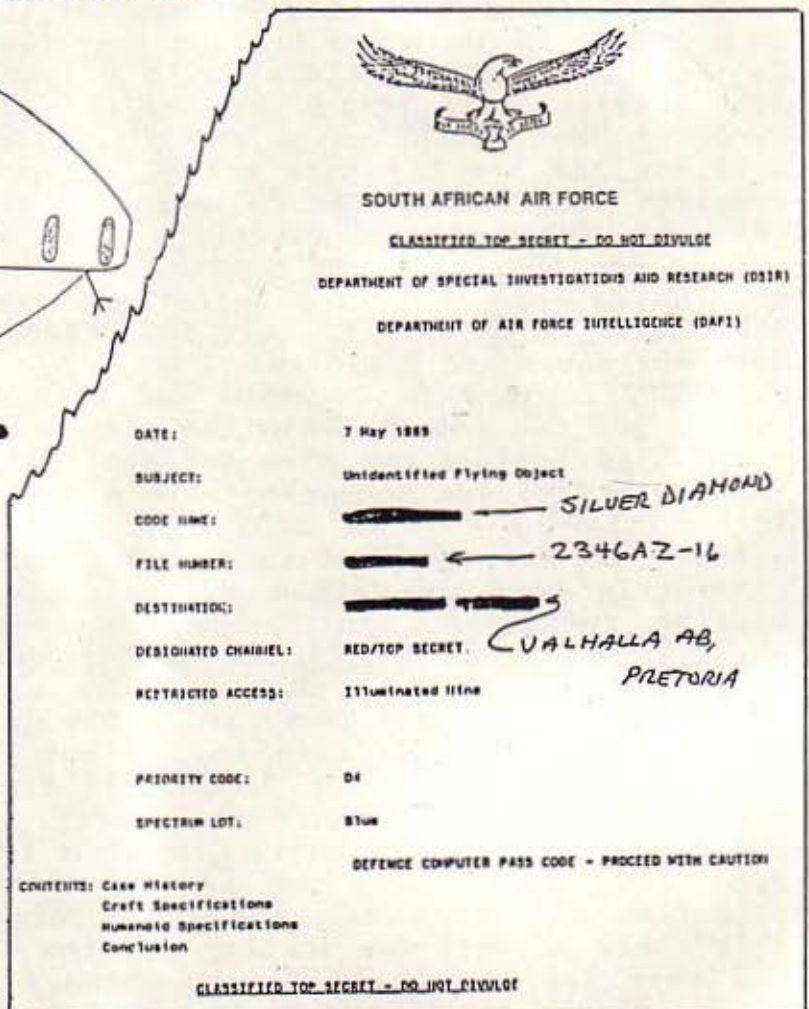 SOUTH AFRICAN AIR FORCE
CLASSIFIED TOP SECRET - DO NOT DIVULGE
DEPARTMENT OF SPECIAL INVESTIGATIONS AND RESEARCH (DSIR)
DEPARTMENT OF AIR FORCE INTELLIGENCE (DAFI)
DATE: 7 May 1989
SUBJECT: Unidentified Flying Object
CODE NAME: SILVER DIAMOND
FILE NUMBER: 2346AZ-16
DESTINATION: VALHALLA AB,
PRETORIA
DESIGNATED CHANNEL: RED/TOP SECRET.
RESTRICTED ACCESS: Illuminated Nine
PRIORITY CODE: D4
SPECTRUM LOT: Blue
DEFENCE COMPUTER PASS CODE - PROCEED WITH CAUTION
CONTENTS: Case History
Craft Specifications
Humanoid Specifications
Conclusion
CLASSIFIED TOP SECRET - DO NOT DIVULGE